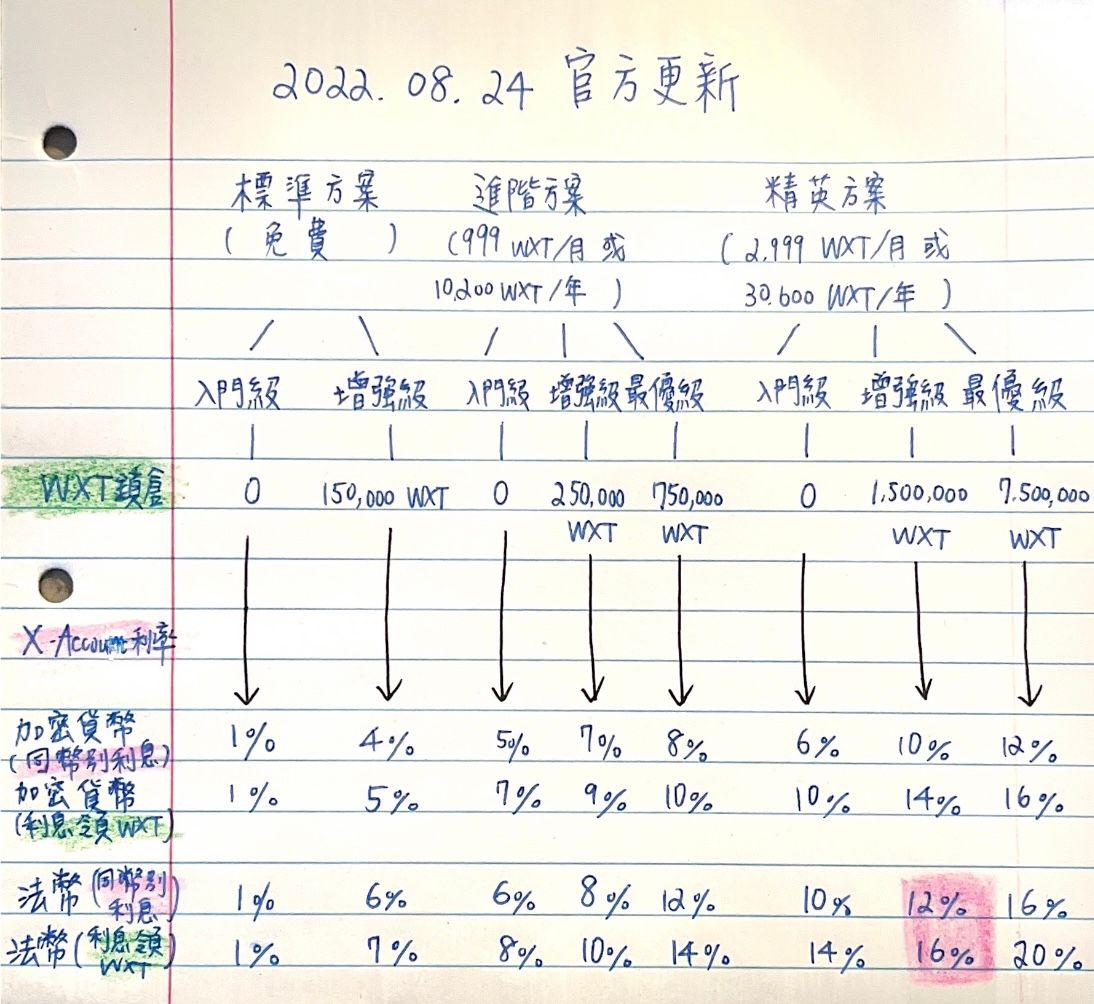 2022.08.24 官方更新
標準方案 進階方案 精英方案
(免費) (999 WXT/月 或 (2,999 WXT/月 或
10,200 WXT/年) 30.600 WXT/年)
入門級 增強級 入門級 增強級 最優級 入門級 增強級 最優級
WXT鎖倉 0 150,000 WXT 0 250,000 750,000 0 1,500,000 7.500,000
WXT WXT WXT WXT
X-Account利率
加密貨幣 1% 4% 5% 7% 8% 6% 10% 12%
(同幣別利息)
加密貨幣 1% 5% 7% 9% 10% 10% 14% 16%
(利息領WXT)
法幣(同幣別 1% 6% 6% 8% 12% 10% 12% 16%
利息)
法幣(利息領 1% 7% 8% 10% 14% 14% 16% 20%
WXT)